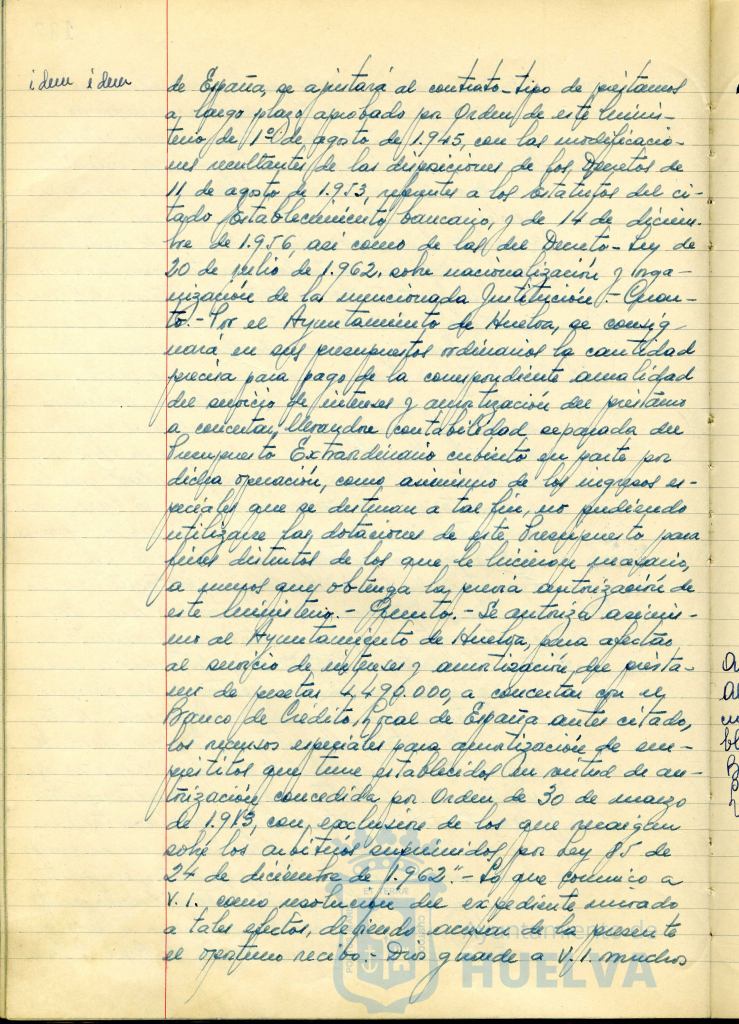 idem idem
de España, se ajustará al contrato-tipo de préstamos
a largo plazo aprobado por Orden de este Minis-
terio de 1º de agosto de 1.945, con las modificacio-
nes resultantes de las disposiciones de los Decretos de
11 de agosto de 1.953, referentes a los Estatutos del ci-
tado Establecimiento bancario, y de 14 de diciem-
bre de 1.956, así como de las del Decreto-Ley de
20 de julio de 1.962, sobre nacionalización y orga-
nización de la mencionada Institución.- Cuar-
to.- Por el Ayuntamiento de Huelva, se consig-
nará en sus presupuestos ordinarios la cantidad
precisa para pago de la correspondiente anualidad
del servicio de intereses y amortización del préstamo
a concertar, llevándose contabilidad separada del
Presupuesto Extraordinario cubierto en parte por
dicha operación, como asimismo de los ingresos es-
peciales que se destinan a tal fin, no pudiendo
utilizarse las dotaciones de este Presupuesto para
fines distintos de los que le hicieron necesario,
a menos que obtenga la previa autorización de
este Ministerio.- Quinto.- Se autoriza asimis-
mo al Ayuntamiento de Huelva, para afectar
al servicio de intereses y amortización del présta-
mo de pesetas 4.490.000, a concertar con el
Banco de Crédito Local de España antes citado,
los recursos especiales para amortización de em-
préstitos que tiene establecidos en virtud de au-
torización concedida por Orden de 30 de marzo
de 1.953, con exclusión de los que recaigan
sobre los arbitrios suprimidos por Ley 85 de
24 de diciembre de 1.962".- Lo que comunico a
V.I. como resolución del expediente incoado
a tales efectos, debiendo acusar de la presente
el oportuno recibo.- Dios guarde a V.I. muchos
Ayuntamiento de
HUELVA